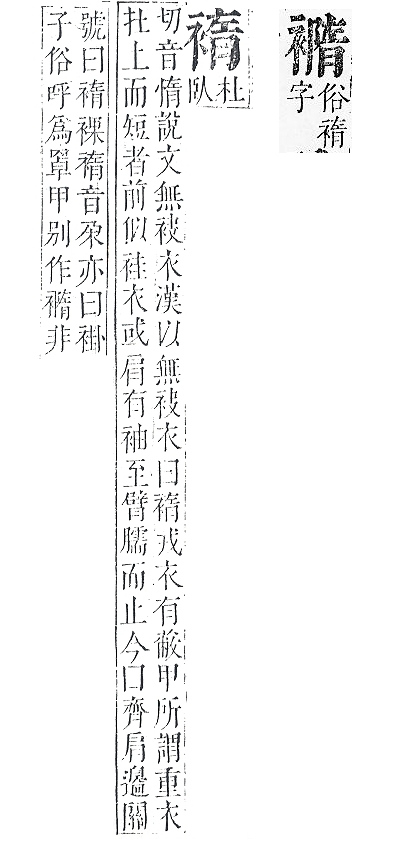 䙐
俗䙃
字
䙃
杜
臥
切音惰說文無袂衣漢以無袂衣曰䙃戎衣有蔽甲所謂重衣
扗上而短者前似袿衣或肩有袖至臂臑而止今口齊肩邉關
號曰䙃裸䙃音朶亦曰褂
子俗呼爲罩甲别作䙐非